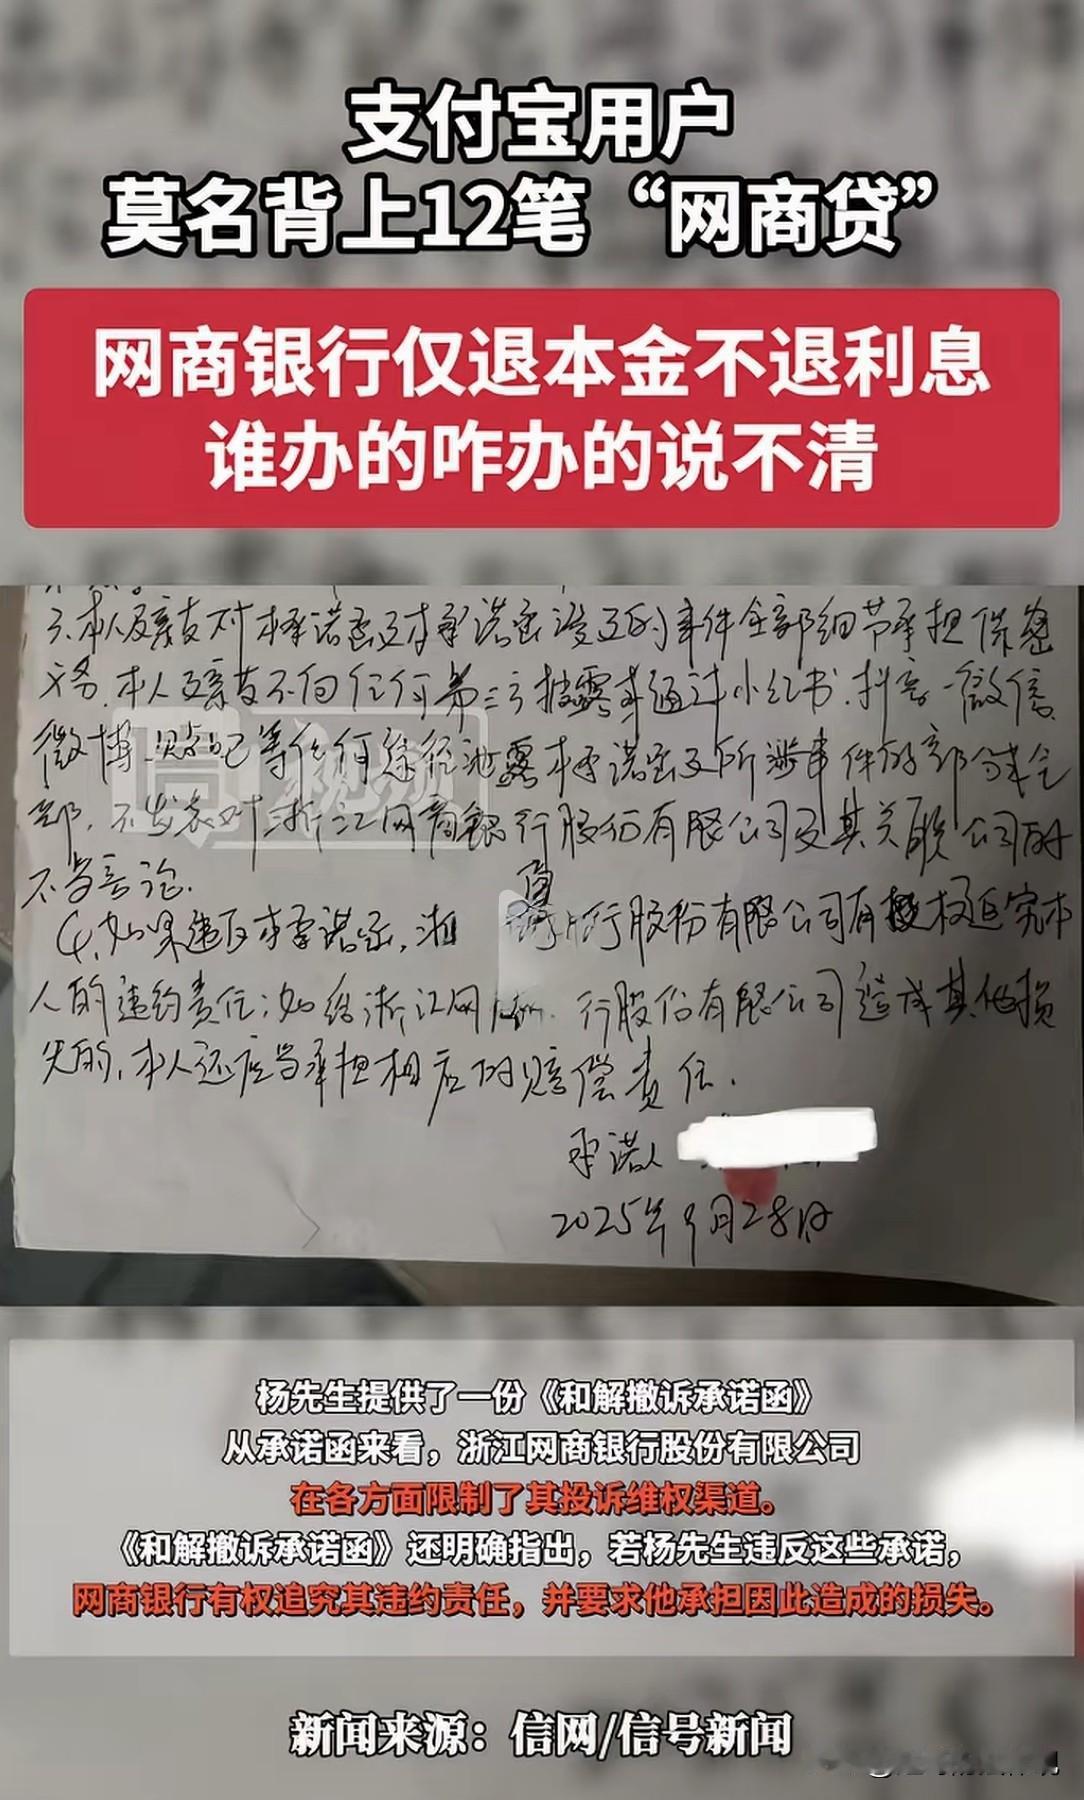 支付宝用户
莫名背上12笔“网商贷”
网商银行仅退本金不退利息
谁办的咋办的说不清
3、本人及亲友对本承诺函及本承诺函涉及的事件全部细节承担保密
义务,本人及亲友不向任何第三方披露或通过小红书、抖音、微信、
微博、贴吧等任何途径泄露本承诺函及所涉事件的部分或全
部,不发表对浙江网商银行股份有限公司及其关联公司的
不当言论.
4、如果违反本承诺函,浙 行股份有限公司有权追究本
人的违约责任;如给浙江网 行股份有限公司造成其他损
失的,本人还应当承担相应的赔偿责任.
承诺人
2025年9月28日
杨先生提供了一份《和解撤诉承诺函》
从承诺函来看，浙江网商银行股份有限公司
在各方面限制了其投诉维权渠道。
《和解撤诉承诺函》还明确指出，若杨先生违反这些承诺，
网商银行有权追究其违约责任，并要求他承担因此造成的损失。
新闻来源：信网/信号新闻